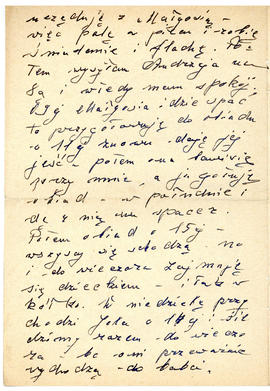 urzęduję z Małgosią –
więc palę w piecu i robię
śniadanie i flachę. Po-
tem wysyłam Andrzeja na
8ą i wtedy mam spokój,
o 9ej Małgosia idzie spać
to przygotowuję do obiadu
o 11ej znowu daję jej
jeść – potem ona bawi się
przy mnie, a ja gotuję
obiad – w południe i-
dę z nią na spacer.
Potem obiad o 15ej –
wszyscy się schodzą, no
i do wieczora zajmuję
się dzieckiem – i tak w
kółko. W niedzielę przy
chodzi Jola o 11ej i sie
dzimy razem – do wieczo
ra bo oni przeważnie
wychodzą – do babci.